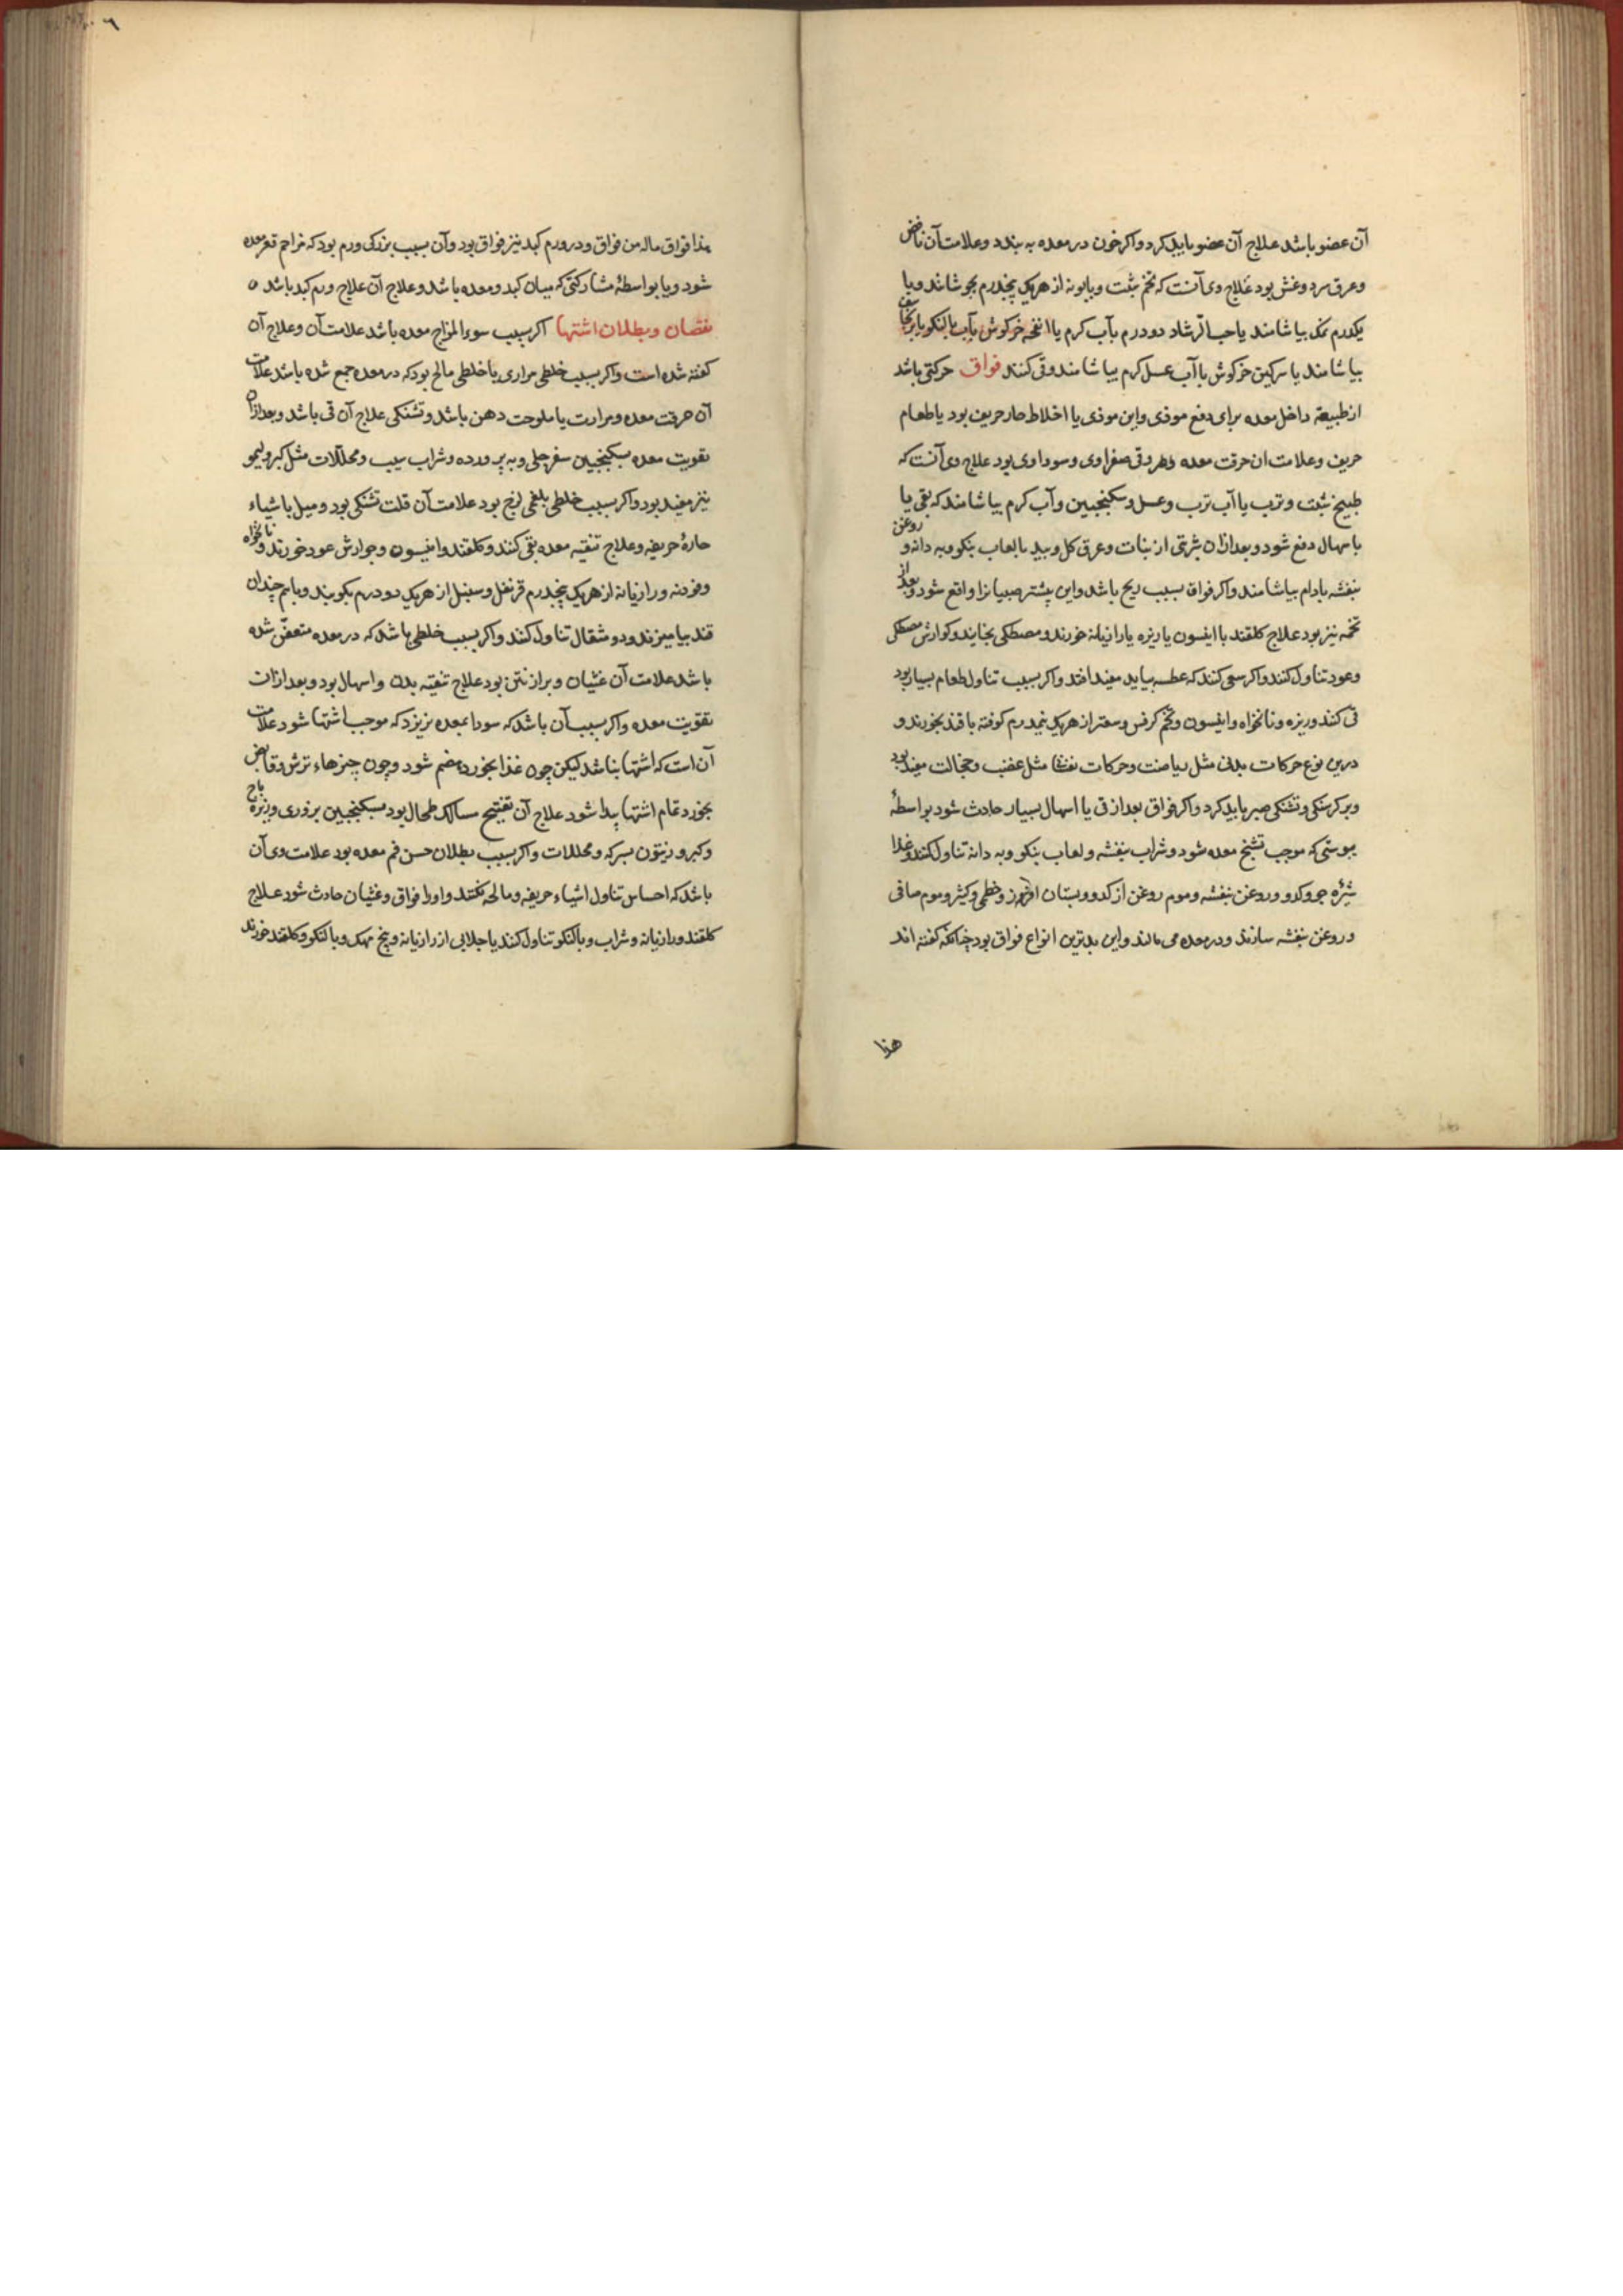 آن عضو باشد علاج آن عضو باید کرد و اکر خون در معده به بندد و علامت آن نافض
و عرق سرد و غش بود علاج وی آنست که تخم شبت و بابونه از هریک پنجدرم بجوشانند و با
یکدرم نمک بیاشامند یا حب الرشاد دو درم بآب کرم یا انفحه خرکوش بآب بالنکو یا
بیاشامند یا سرکین خرکوش با آب عسل کرم بیاشامند و قی کنند فواق حرکتی باشد
از طبیعة داخل معده برای دفع موذی و این موذی یا اخلاط حار حریف بود یا طعام
حریف و علامت ان حرقت معده و هر و قی صفراوی و سوداوی بود علاج وی آنست که
طبیخ شبت و ترب یا آب ترب و عسل و سکنجبین و آب کرم بیاشامند که بقی یا
باسهال دفع شود و بعد ازان شربتی از نبات و عرق کل و بید با لعاب بنکو و به دانه و روغن
بنفشه بادام بیاشامند و اکر فواق بسبب ریح باشد و این بیشتر صبیانرا واقع شود و بعد از
تخمه نیز بود علاج کلقند با انیسون یا زیره یا رازیانه خورند و مصطکی بخایند و کوارش مصطکی
و عود تناول کنند و اکر سعی کنند که عطسه بیاید مفید افتد و اکر بسبب تناول طعام بسیار بود
قی کند و زیره و نانخواه و انیسون و تخم کرفس و سعتر از هریک نیمدرم کوفته با قند بخورند و
درین نوع حرکات بدنی مثل ریاضت و حرکات نفسا مثل غضب و خجالت مفید بود
و بر کرسنکی و تشنکی صبر باید کرد و اکر فواق بعد از قی یا اسهال بسیار حادث شود بواسطهٔ
یبوستی که موجب تشنج معده شود و شراب بنفشه و لعاب بنکو و به دانه تناول کنند و غذا
شیره جو و کدو و روغن بنفشه و موم روغن از کدو و بستان افروز و خطمی و کثیر و موم صافی
و روغن بنفشه سازند و در معده می مالند و این بدترین انواع فواق بود چنانکه کفته اند
هذا
هذا فواق ماله من فواق و در ورم کبد نیز فواق بود و آن بسبب بزرکی ورم بود که مزاحم قعر معده
شود و یا بواسطهٔ مشارکتی که میان کبد و معده باشد و علاج آن علاج ورم کبد باشد ه
نقصان و بطلان اشتها اکر بسبب سوء المزاج معده باشد علامت آن و علاج آن
کفته شده است و اکر بسبب خلطی مراری یا خلطی مالح بود که در معده جمع شده باشد علامت
آن حرقت معده و مرارت یا ملوحت دهن باشد و تشنکی علاج آن قی باشد و بعد ازان
تقویت معده بسکنجبین سفرجلی و به پرورده و شراب سیب و محللات مثل کبر و لیمو
نیز مفید بود و اکر بسبب خلطی بلغمی لزج بود علامت آن قلت تشنکی بود و میل باشیاء
حارهٔ حریفه و علاج تنقیه معده بقی کنند و کلقند و انیسون و جوارش عود خورند و نانخواه
و فودنه و رازیانه از هریک پنجدرم قرنفل و سنبل از هریک دو درم بکوبند و با نیم چندان
قند بیامیزند و دو مثقال تناول کنند و اکر بسبب خلطی باشد که در معده متعفن شده
باشد علامت آن غثیان و براز نتن بود علاج تنقیه بدن و اسهال بود و بعد ازان
تقویت معده و اکر بسبب آن باشد که سودا بمعده نریزد که موجب اشتها شود علامت
آن است که اشتها نباشد لیکن چون غذا بخورد هضم شود و چون چیزهاء ترش و قابض
بخورد تمام اشتها پیدا شود علاج آن تفتیح مسالک طحال بود بسکنجبین بزوری و زیره باج
و کبر و زیتون بسرکه و محللات و اکر بسبب بطلان حس فم معده بود علامت وی آن
باشد که احساس تناول اشیاء حریفه و مالحه نکند و اورا فواق و غثیان حادث شود علاج
کلقند و رازیانه و شراب و بالنکو تناول کنند یا جلابی از رازیانه و بیخ مهک و بالنکو و کلقند خورند